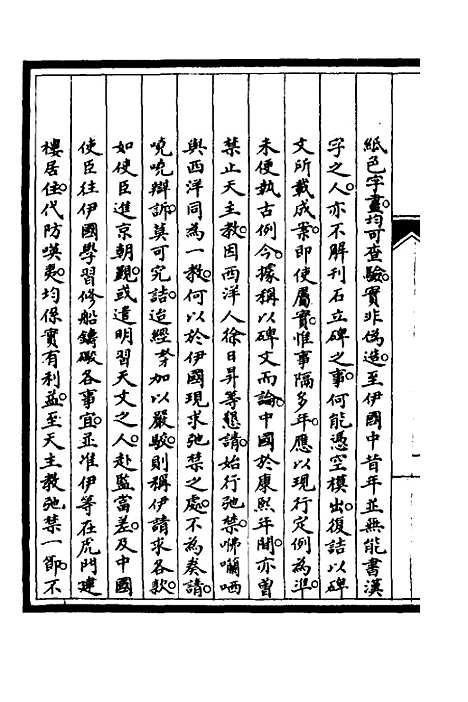 紙色字畫。均可查驗。實非偽造。至伊國中昔年並無能書漢
字之人。亦不解刊石立碑之事。何能憑空模出。復詰以碑
文所載成案。即使屬實。惟事隔多年。應以現行定例為準。
未便執古例今。據稱以碑文而論。中國於康熙年間。亦曾
禁止天主教。因西洋人徐日昇等懇請。始行弛禁。咈囒哂
與西洋同為一教。何以於伊國現求弛禁之處。不為奏請。
嘵嘵辯訴。莫可究詰。迨經勞加以嚴駁。則稱伊請求各款。
如使臣進京朝覲。或遣明習天文之人。赴監當差。及中國
使臣往伊國學習修船鑄礮各事宜。並准伊等在虎門建
樓居住。代防𠸄夷。均係實有利益。至天主教弛禁一節。不